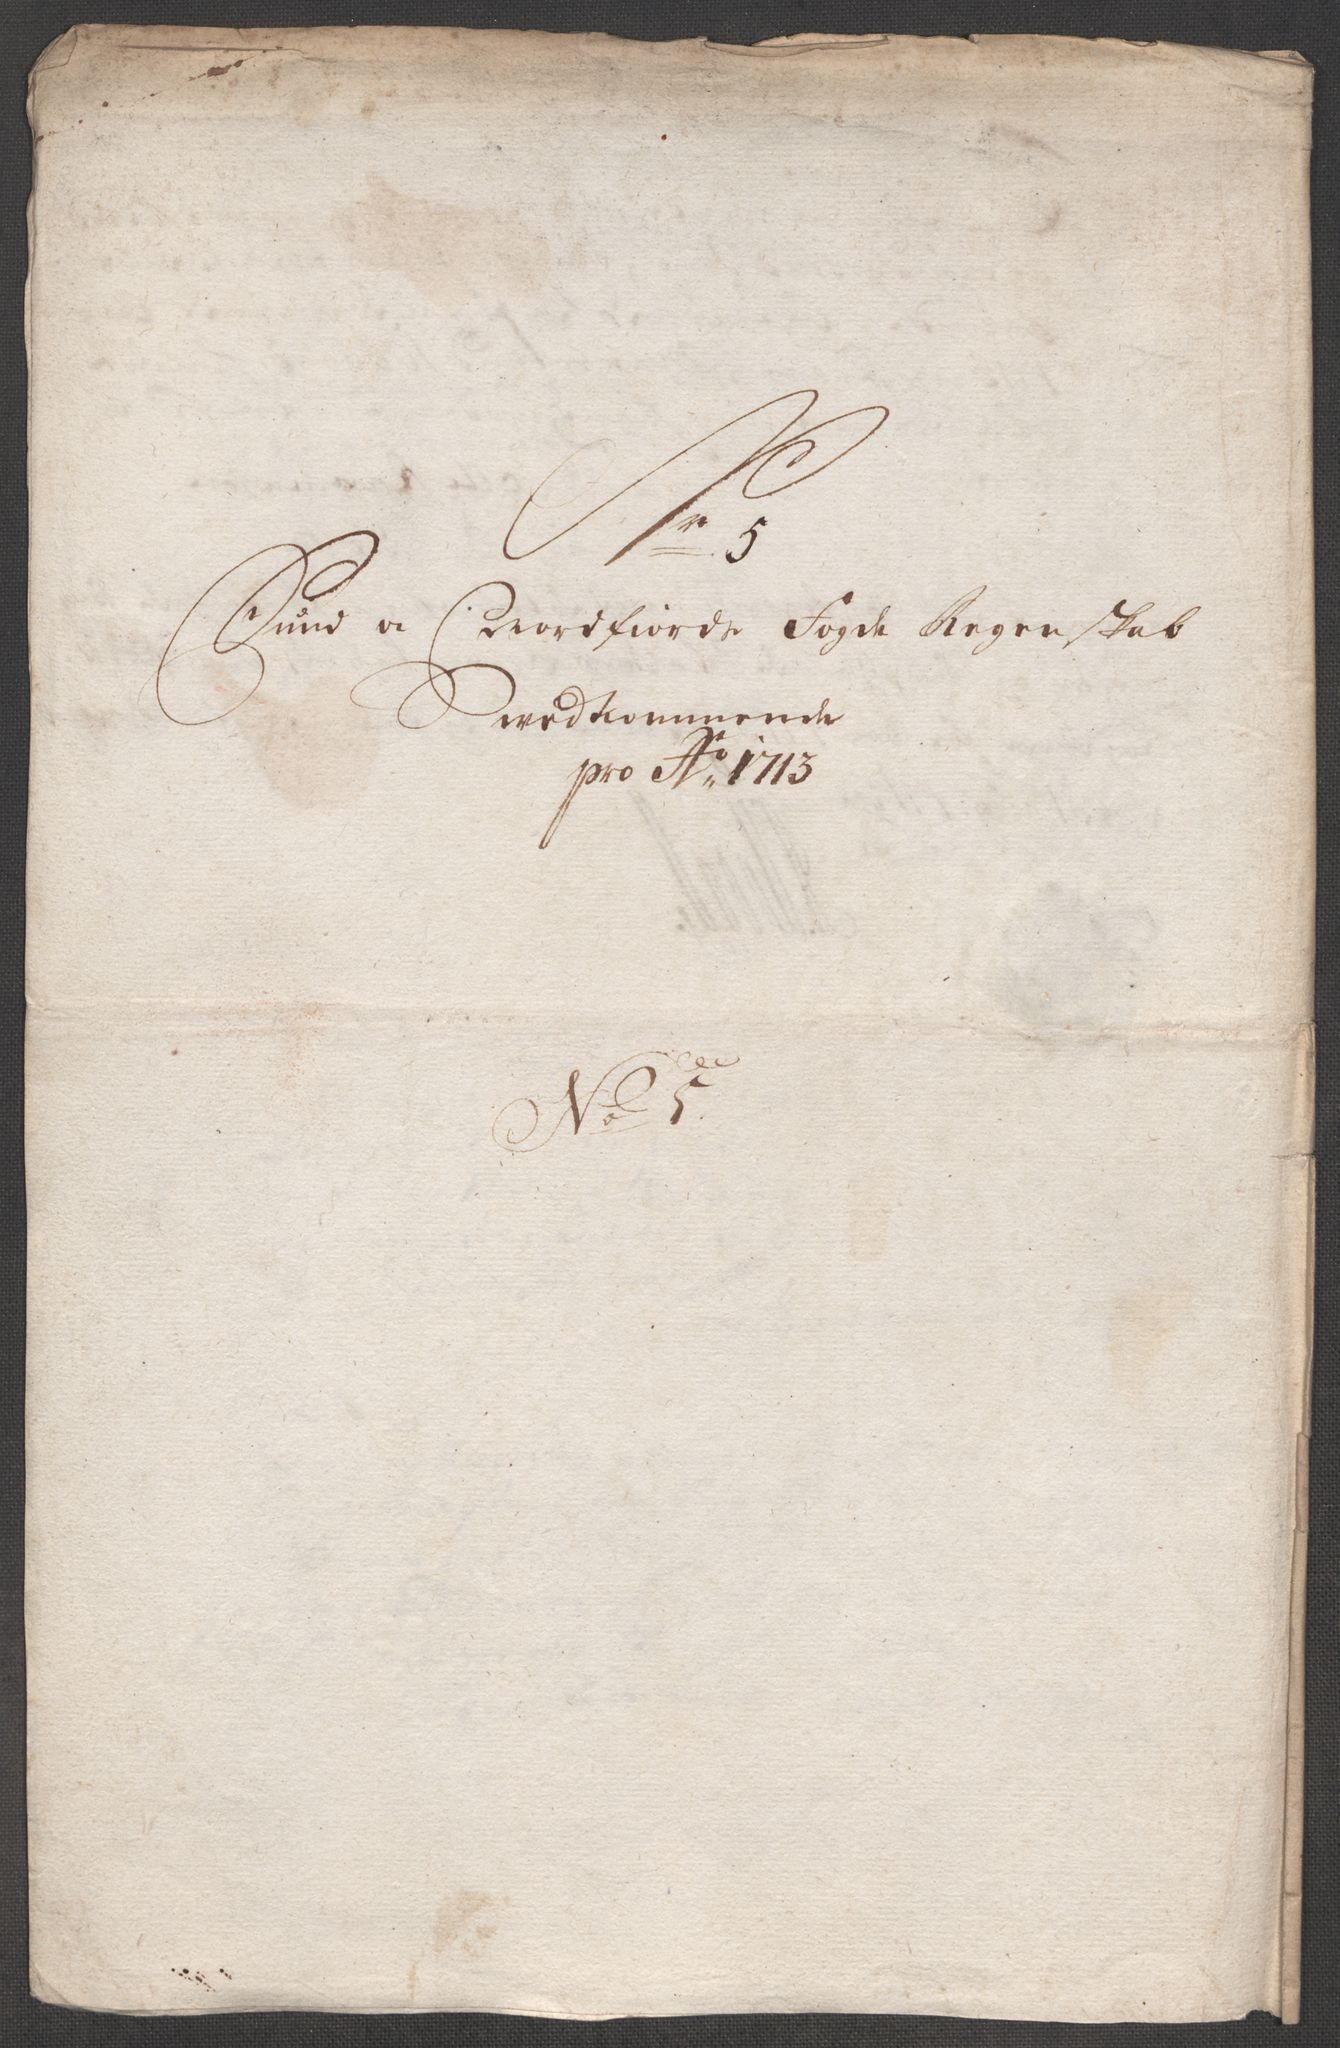 Nr 5
Sund oc Nordfiords Fogde Regenskab
vedkommende
pro Ao 1713
No 5